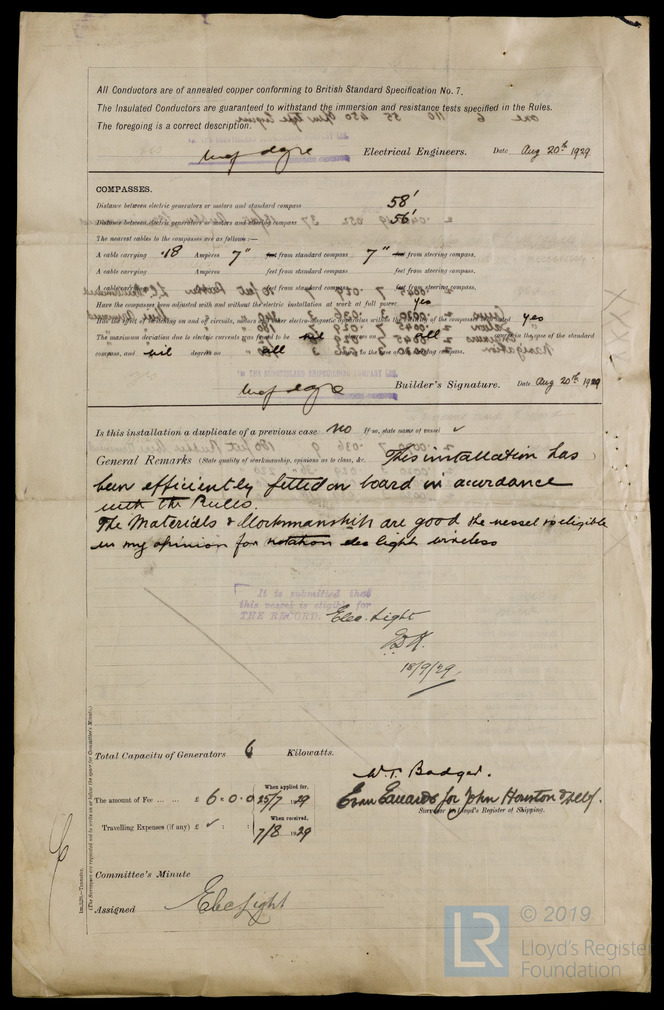 All Conductors are of annealed copper conforming to British Standard Specification No. 7.
The Insulated Conductors are guaranteed to withstand the immersion and resistance tests specified in the Rules.
The foregoing is a correct description.
THE SUNDERLAND SHIPBUILDING COMPANY LTD.
Electrical Engineers. Date Aug 20th 1929
COMPASSES.
Distance between electric generators or motors and standard compass 58'
Distance between electric generators or motors and steering compass 56'
The nearest cables to the compasses are as follows:—
A cable carrying .18 Ampères 7" feet from standard compass 7" feet from steering compass.
A cable carrying Ampères feet from standard compass feet from steering compass.
A cable carrying Ampères feet from standard compass feet from steering compass.
Have the compasses been adjusted with and without the electric installation at work at full power yes
yes
The maximum deviation due to electric currents was found to be nil degrees on all course in the case of the standard
compass, and nil degrees on all course in the case of the steering compass.
THE SUNDERLAND SHIPBUILDING COMPANY LTD.
Builder's Signature. Date Aug 20th 1929
Is this installation a duplicate of a previous case no If so, state name of vessel ✓
General Remarks (State quality of workmanship, opinions as to class, &c. This installation has
been efficiently fitted on board in accordance
with the Rules.
The Materials & Workmanship are good the vessel is eligible
in my opinion for notation elec light wireless
It is submitted that
this vessel is eligible for
THE RECORD. Elec. Light
18/9/29
Total Capacity of Generators 6 Kilowatts.
W. T. Badger.
The amount of Fee ... ... £ 6 : 0 : 0 When applied for, 25/7 1929
Evan Edwards for John Houston & self.
Surveyor to Lloyd's Register of Shipping.
Travelling Expenses (if any) £ ✓ : : When received, 7/8 1929
Committee's Minute
Assigned Elec Light
Im.5.28.—Transfer.
(The Surveyors are requested not to write on or below the space for Committee's Minute.)
LR © 2019
Lloyd's Register
Foundation